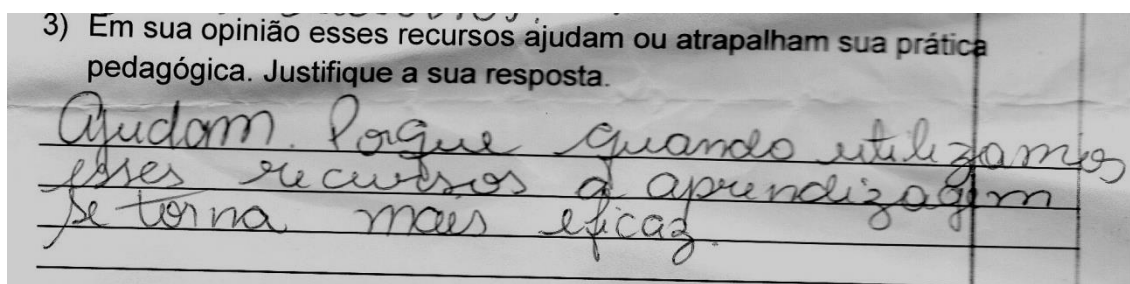 3) Em sua opinião esses recursos ajudam ou atrapalham sua prática
pedagógica. Justifique a sua resposta.
Ajudam. Porque quando utilizamos
esses recursos a aprendizagem
se torna mais eficaz.